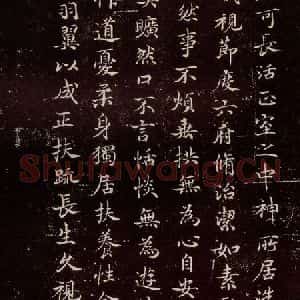 可長活正室之中神所居洗
視節度六府修治潔如素
然事不煩垂拱無為心自安
曠然口不言恬惔無為遊
作道憂柔身獨居扶養性
羽翼以成正扶疏長生久視
Shufawang.CN